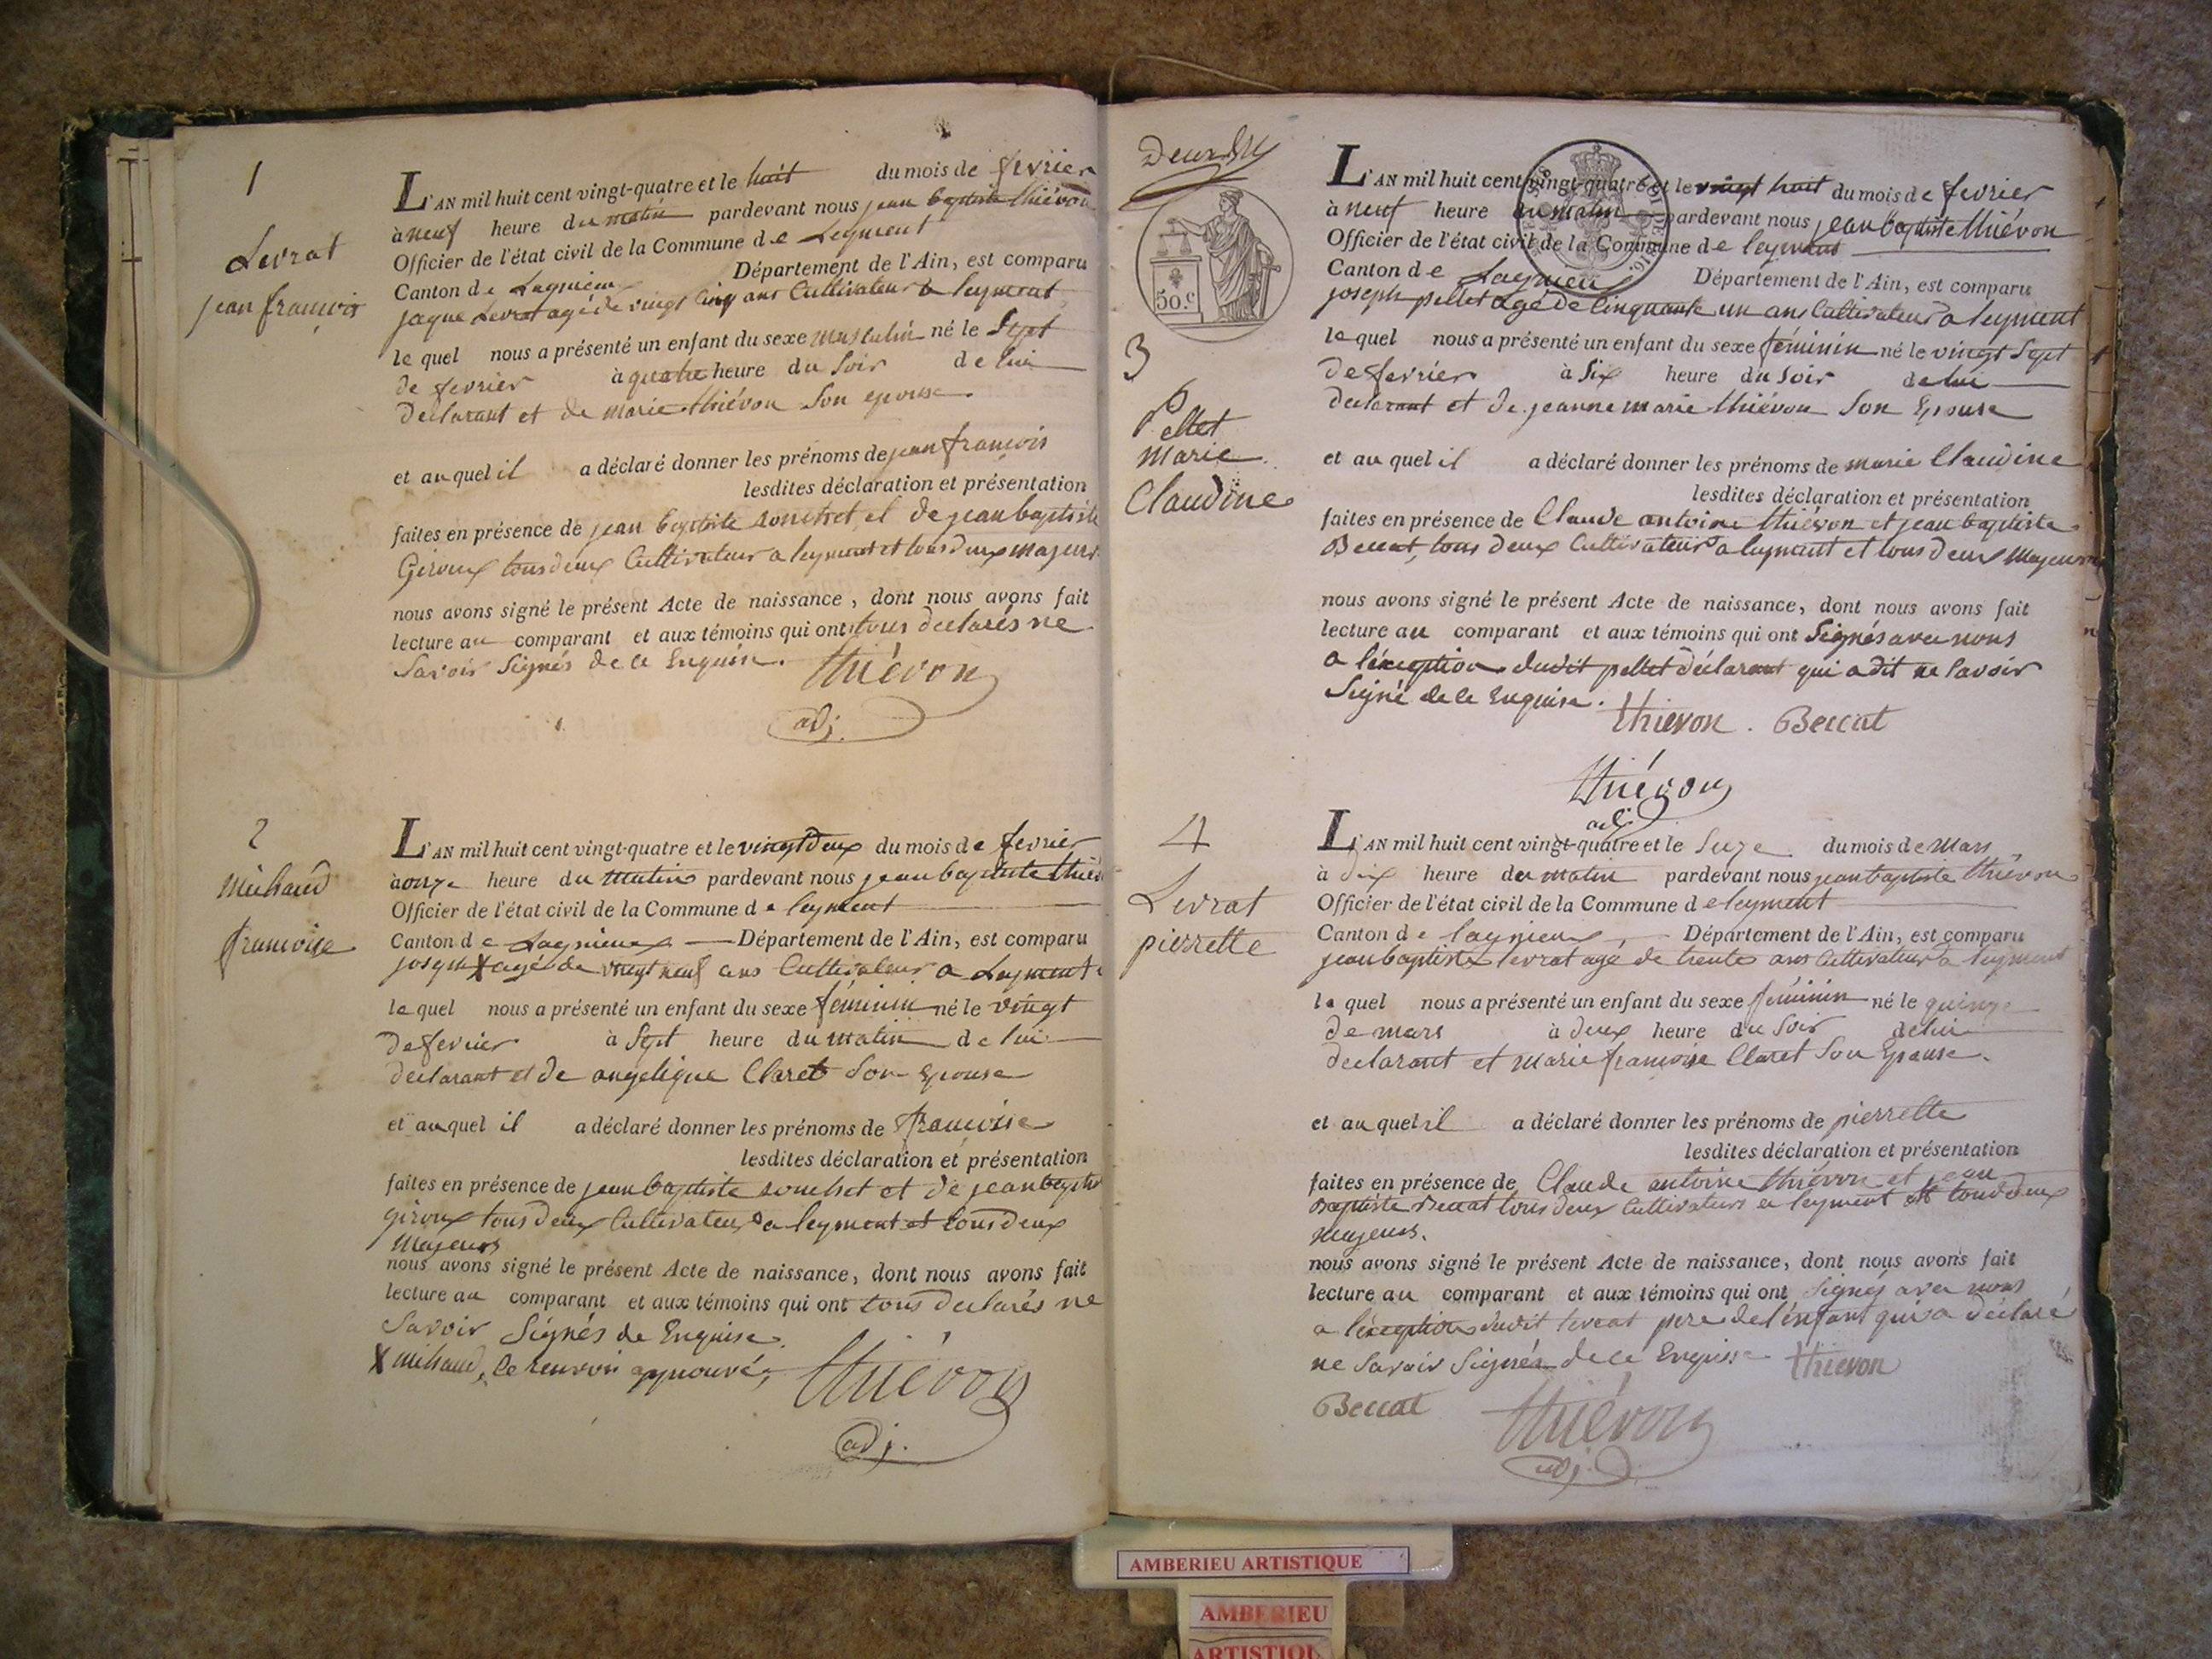 1
Levrat
jean françois
L'AN mil huit cent vingt-quatre et le huit du mois de fevrier
à neuf heure du matin pardevant nous jean baptiste thiévon
Officier de l'état civil de la Commune de Leyment
Canton de Lagnieux Département de l'Ain, est comparu
jaque Levrat agé de vingt cinq ans Cultivateur a leyment
le quel nous a présenté un enfant du sexe masculin né le Sept
de fevrier à quatre heure du Soir de lui
declarant et de marie thiévon Son epouse.
et au quel il a déclaré donner les prénoms de jean françois
lesdites déclaration et présentation
faites en présence de jean baptiste souchet et de jean baptiste
Giroux tous deux Cultivateur a leyment et tous deux majeurs
nous avons signé le présent Acte de naissance, dont nous avons fait
lecture au comparant et aux témoins qui ont tous declarés ne
Savoir Signés de ce Enquis.
thiévon
adj.
2
michaud
françoise
L'AN mil huit cent vingt-quatre et le vingt deux du mois de fevrier
à onze heure du matin pardevant nous jean baptiste thiév
Officier de l'état civil de la Commune de leyment
Canton de Lagnieux Département de l'Ain, est comparu
joseph X agé de vingt neuf ans Cultivateur a Leyment
le quel nous a présenté un enfant du sexe féminin né le vingt
de fevrier à Sept heure du matin de lui
declarant et de angelique Claret Son Epouse
et au quel il a déclaré donner les prénoms de françoise
lesdites déclaration et présentation
faites en présence de jean baptiste souchet et de jean baptiste
giroux tous deux Cultivateur a leyment et tous deux
majeurs
nous avons signé le présent Acte de naissance, dont nous avons fait
lecture au comparant et aux témoins qui ont tous declarés ne
Savoir Signés de Enquise.
X michaud, le renvoi approuvé,
thiévon
adj.
50.c
3
Pellet
marie
Claudine
L'AN mil huit cent vingt-quatre et le vingt huit du mois de fevrier
à neuf heure du matin pardevant nous jean baptiste thiévon
Officier de l'état civil de la Commune de leyment
Canton de Lagnieu Département de l'Ain, est comparu
joseph pellet agé de Cinquante un ans Cultivateur a leyment
le quel nous a présenté un enfant du sexe féminin né le vingt Sept
de fevrier à Six heure du Soir de lui
declarant et de jeanne marie thiévon Son Epouse
et au quel il a déclaré donner les prénoms de marie Claudine
lesdites déclaration et présentation
faites en présence de Claude antoine thiévon et jean baptiste
Beccat, tous deux Cultivateur a leyment et tous deux majeurs
nous avons signé le présent Acte de naissance, dont nous avons fait
lecture au comparant et aux témoins qui ont Signés avec nous
a l'éxception dudit pellet déclarant qui a dit ne Savoir
Signé de ce Enquise.
thievon. Beccat
thiévon
adj.
4
Levrat
pierrette
L'AN mil huit cent vingt-quatre et le Seize du mois de Mars
à dix heure du matin pardevant nous jean baptiste thiévon
Officier de l'état civil de la Commune de leyment
Canton de lagnieux Département de l'Ain, est comparu
jean baptiste levrat agé de trente ans Cultivateur a leyment
le quel nous a présenté un enfant du sexe féminin né le quinze
de mars à deux heure du Soir de lui
declarant et marie françoise Claret Son Epouse.
et au quel il a déclaré donner les prénoms de pierrette
lesdites déclaration et présentation
faites en présence de Claude antoine thiévon et jean
Baptiste Beccat tous deux Cultivateurs a leyment et tous deux
majeurs.
nous avons signé le présent Acte de naissance, dont nous avons fait
lecture au comparant et aux témoins qui ont Signés avec nous
a l'éxception dudit levrat pere de l'énfant qui a déclaré
ne Savoir Signés de ce Enquise
thievon
Beccat
thiévon
adj.
AMBERIEU ARTISTIQUE
AMBERIEU
ARTISTIQU